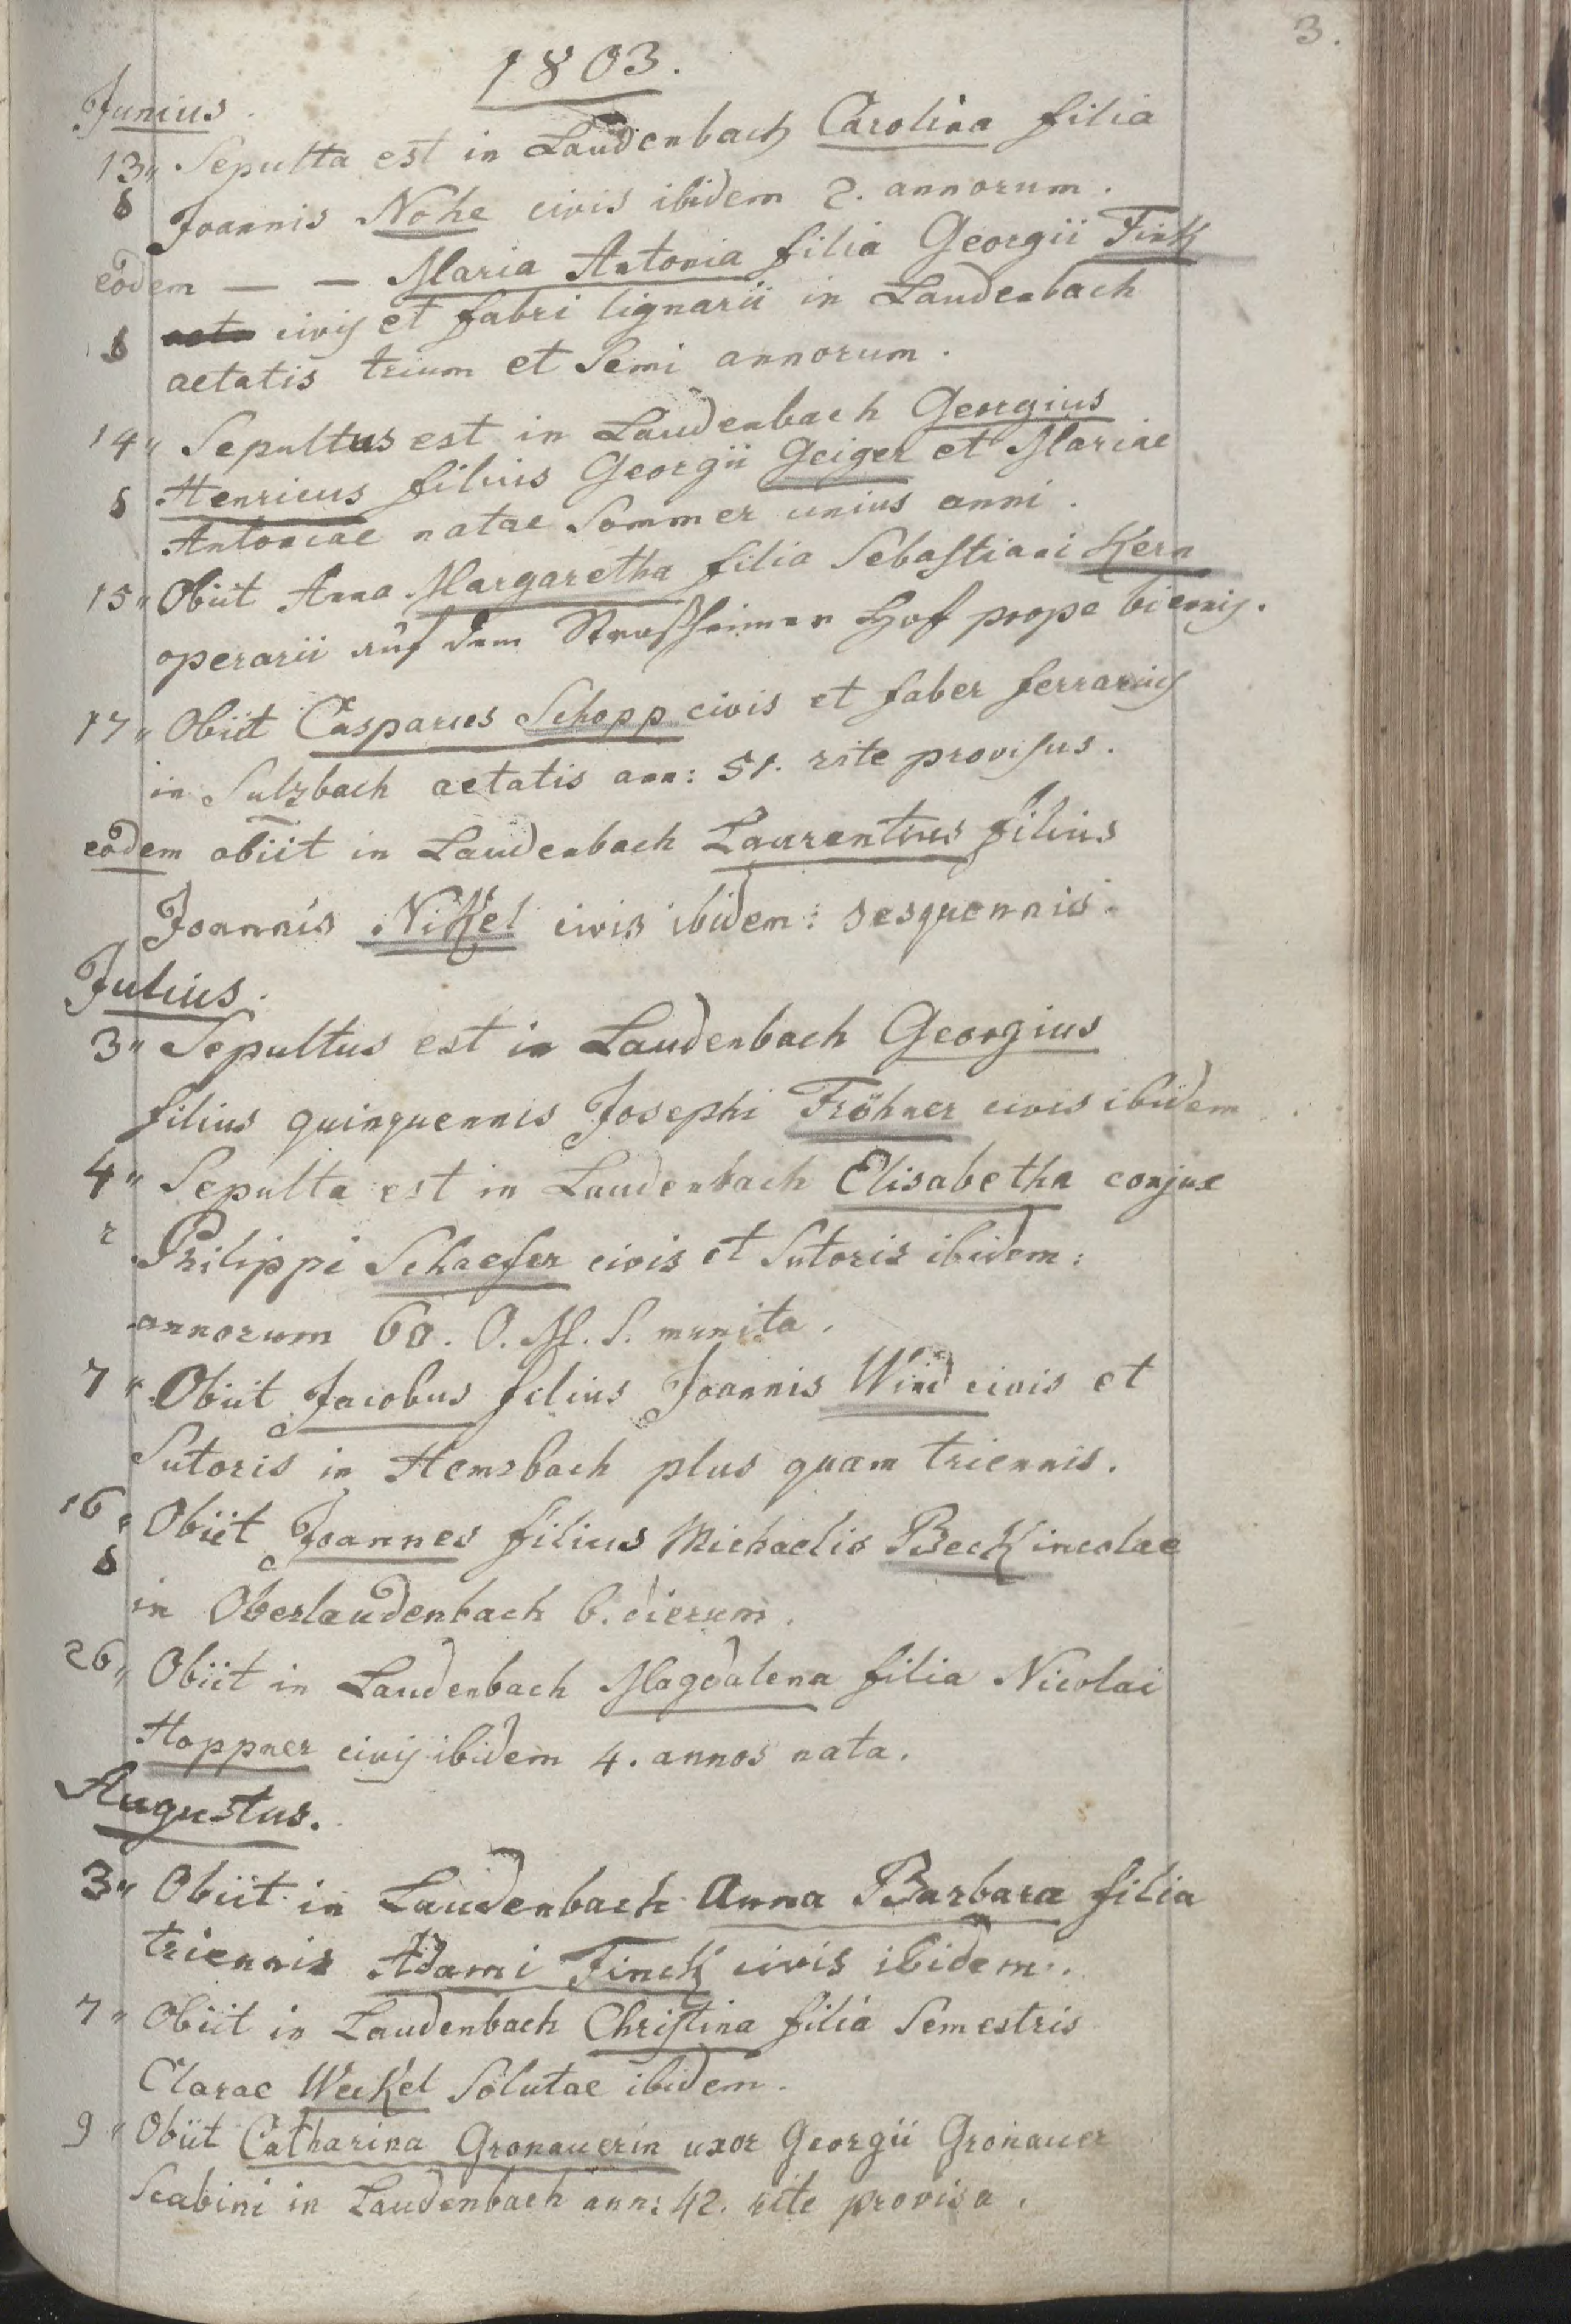 3.
1803.
Junius.
13" Sepulta est in Laudenbach Carolina filia
8 Joannis Nohe civis ibidem 2. annorum.
eodem — — Maria Antonia filia Georgii Fink
8 civis et fabri lignarii in Laudenbach
aetatis trium et Semi annorum.
14" Sepultus est in Laudenbach Georgius
8 Henricus filius Georgii Geiger et Mariae
Antoniae natae Sommer unius anni.
15" Obiit Anna Margaretha filia Sebastiani Kern
operarii auf dem Straßheimer Hof prope biennis.
17" Obiit Casparus Schopp civis et faber ferrarius
in Sulzbach aetatis ann: 51. rite provisus.
eodem obiit in Laudenbach Laurentius filius
Joannis Nikel civis ibidem: sesquennis.
Julius.
3" Sepultus est in Laudenbach Georgius
filius quinquennis Josephi Fröhner civis ibidem
4" Sepulta est in Laudenbach Elisabetha conjux
Philippi Schaefer civis et Sutoris ibidem:
annorum 60. O. M. S. munita.
7" Obiit Jacobus filius Joannis Wind civis et
Sutoris in Hemsbach plus quam triennis.
16" Obiit Joannes filius Michaelis Beck incolae
8 in Oberlaudenbach 6. dierum.
26" Obiit in Laudenbach Magdalena filia Nicolai
Hoppner civis ibidem 4. annos nata.
Augustus.
3" Obiit in Laudenbach Anna Barbara filia
triennis Adami Finck civis ibidem.
7" Obiit in Laudenbach Christina filia Semestris
Clarae Weckel Solutae ibidem.
9" Obiit Catharina Gronauerin uxor Georgii Gronauer
Scabini in Laudenbach ann: 42. rite provisa.